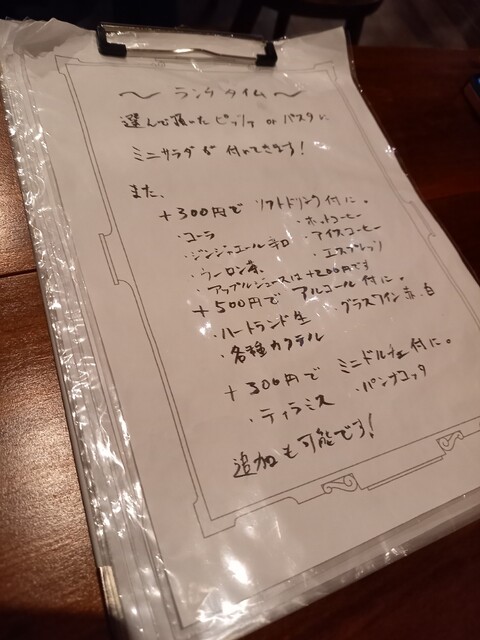 〜 ランチタイム 〜
選んで頂いたピッツァ or パスタに
ミニサラダが付いてきます!
また、
+300円で ソフトドリンク付に。
・コーラ ・ホットコーヒー
・ジンジャエール辛口 ・アイスコーヒー
・ウーロン茶 ・エスプレッソ
・アップルジュースは+200円です
+500円で アルコール付に。
・ハートランド生 ・グラスワイン 赤、白
・各種カクテル
+300円で ミニドルチェ付に。
・ティラミス ・パンナコッタ
追加も可能です!